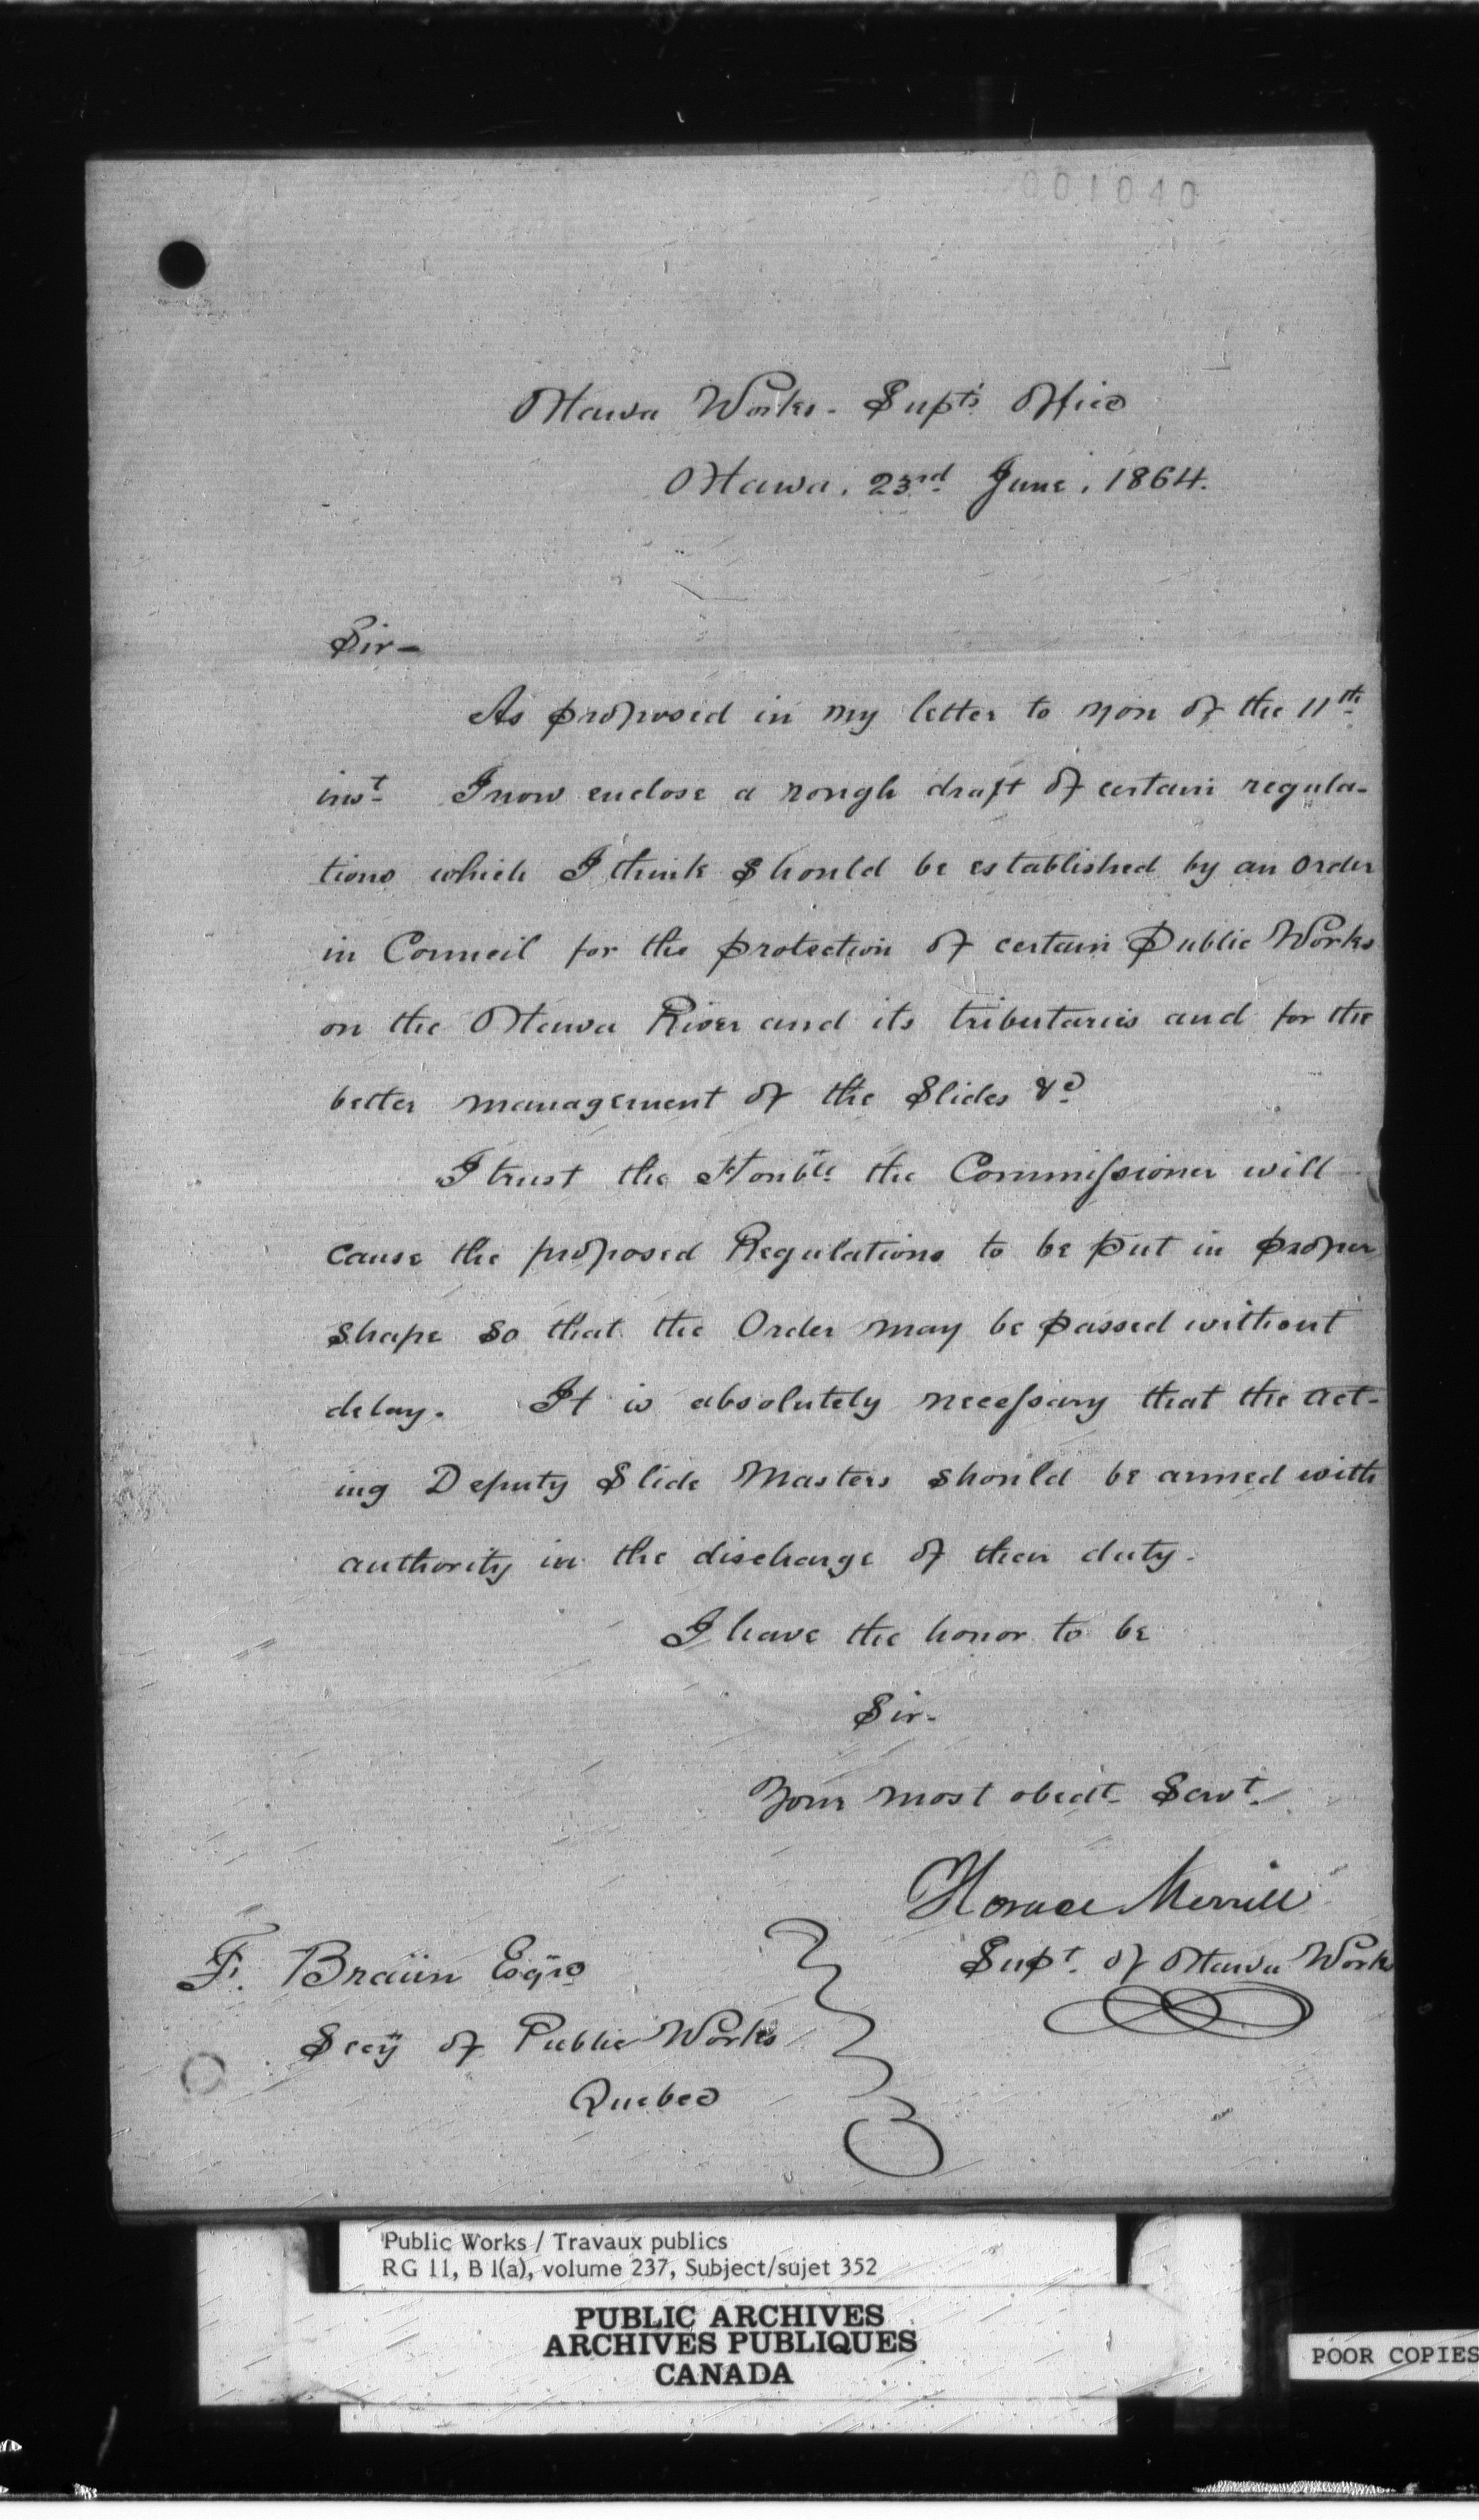 001040
Ottawa Works - Supts Office
Ottawa, 23rd June, 1864.
Sir -
As proposed in my letter to you of the 11th
inst I now enclose a rough draft of certain regula-
tions which I think should be established by an Order
in Council for the protection of certain Public Works
on the Ottawa River and its tributaries and for the
better management of the Slides &c
I trust the Honble the Commissioner will
cause the proposed Regulations to be put in proper
shape so that the Order may be passed without
delay. It is absolutely necessary that the Act-
ing Deputy Slide Masters should be armed with
authority in the discharge of their duty.
I have the honor to be
Sir -
Your most obedt Servt
Horace Merrill
Supt. of Ottawa Works
F. Braün Esqre
Secy of Public Works
Quebec
Public Works / Travaux publics
RG 11, B 1(a), volume 237, Subject/sujet 352
PUBLIC ARCHIVES
ARCHIVES PUBLIQUES
CANADA
POOR COPIES